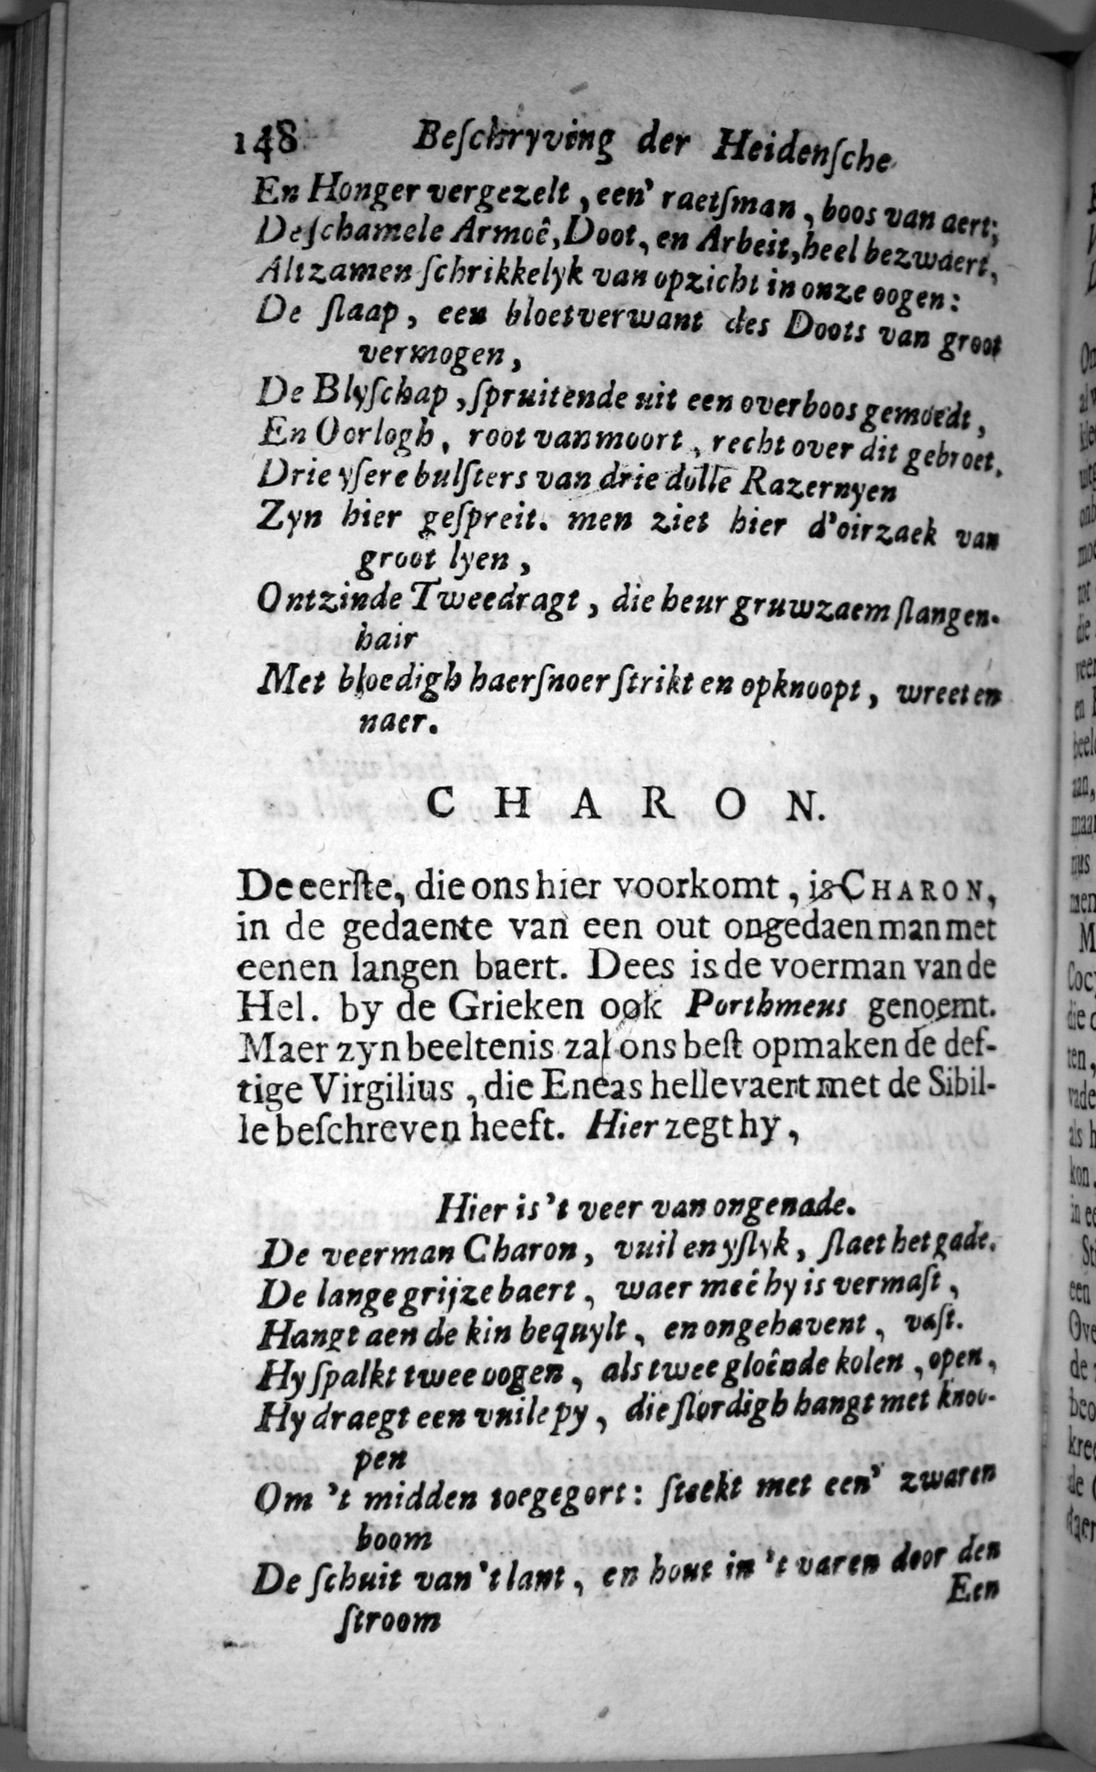 148 Beſchryving der Heidenſche
En Honger vergezelt, een' raetſman, boos van aert;
De ſchamele Armoê, Doot, en Arbeit, heel bezwaert,
Altzamen ſchrikkelyk van opzicht in onze oogen:
De ſlaap, een bloetverwant des Doots van groot
vermogen,
De Blyſchap, ſpruitende uit een overboos gemoedt,
En Oorlogh, root van moort, recht over dit gebroet.
Drie yſere bulſters van drie dolle Razernyen
Zyn hier geſpreit. men ziet hier d'oirzaek van
groot lyen,
Ontzinde Tweedragt, die heur gruwzaem ſlangen-
hair
Met bloedigh haerſnoer ſtrikt en opknoopt, wreet en
naer.
CHARON.
De eerſte, die ons hier voorkomt, is CHARON,
in de gedaente van een out ongedaen man met
eenen langen baert. Dees is de voerman van de
Hel. by de Grieken ook Porthmeus genoemt.
Maer zyn beeltenis zal ons beſt opmaken de def-
tige Virgilius, die Eneas hellevaert met de Sibil-
le beſchreven heeft. Hier zegt hy,
Hier is 't veer van ongenade.
De veerman Charon, vuil en yſlyk, ſlaet het gade.
De lange grijze baert, waer meê hy is vermaſt,
Hangt aen de kin bequylt, en ongehavent, vaſt.
Hy ſpalkt twee oogen, als twee gloênde kolen, open,
Hy draegt een vuile py, die ſlordigh hangt met knoo-
pen
Om 't midden toegegort: ſteekt met een' zwaren
boom
De ſchuit van 't lant, en hout in 't varen door den
ſtroom
Een